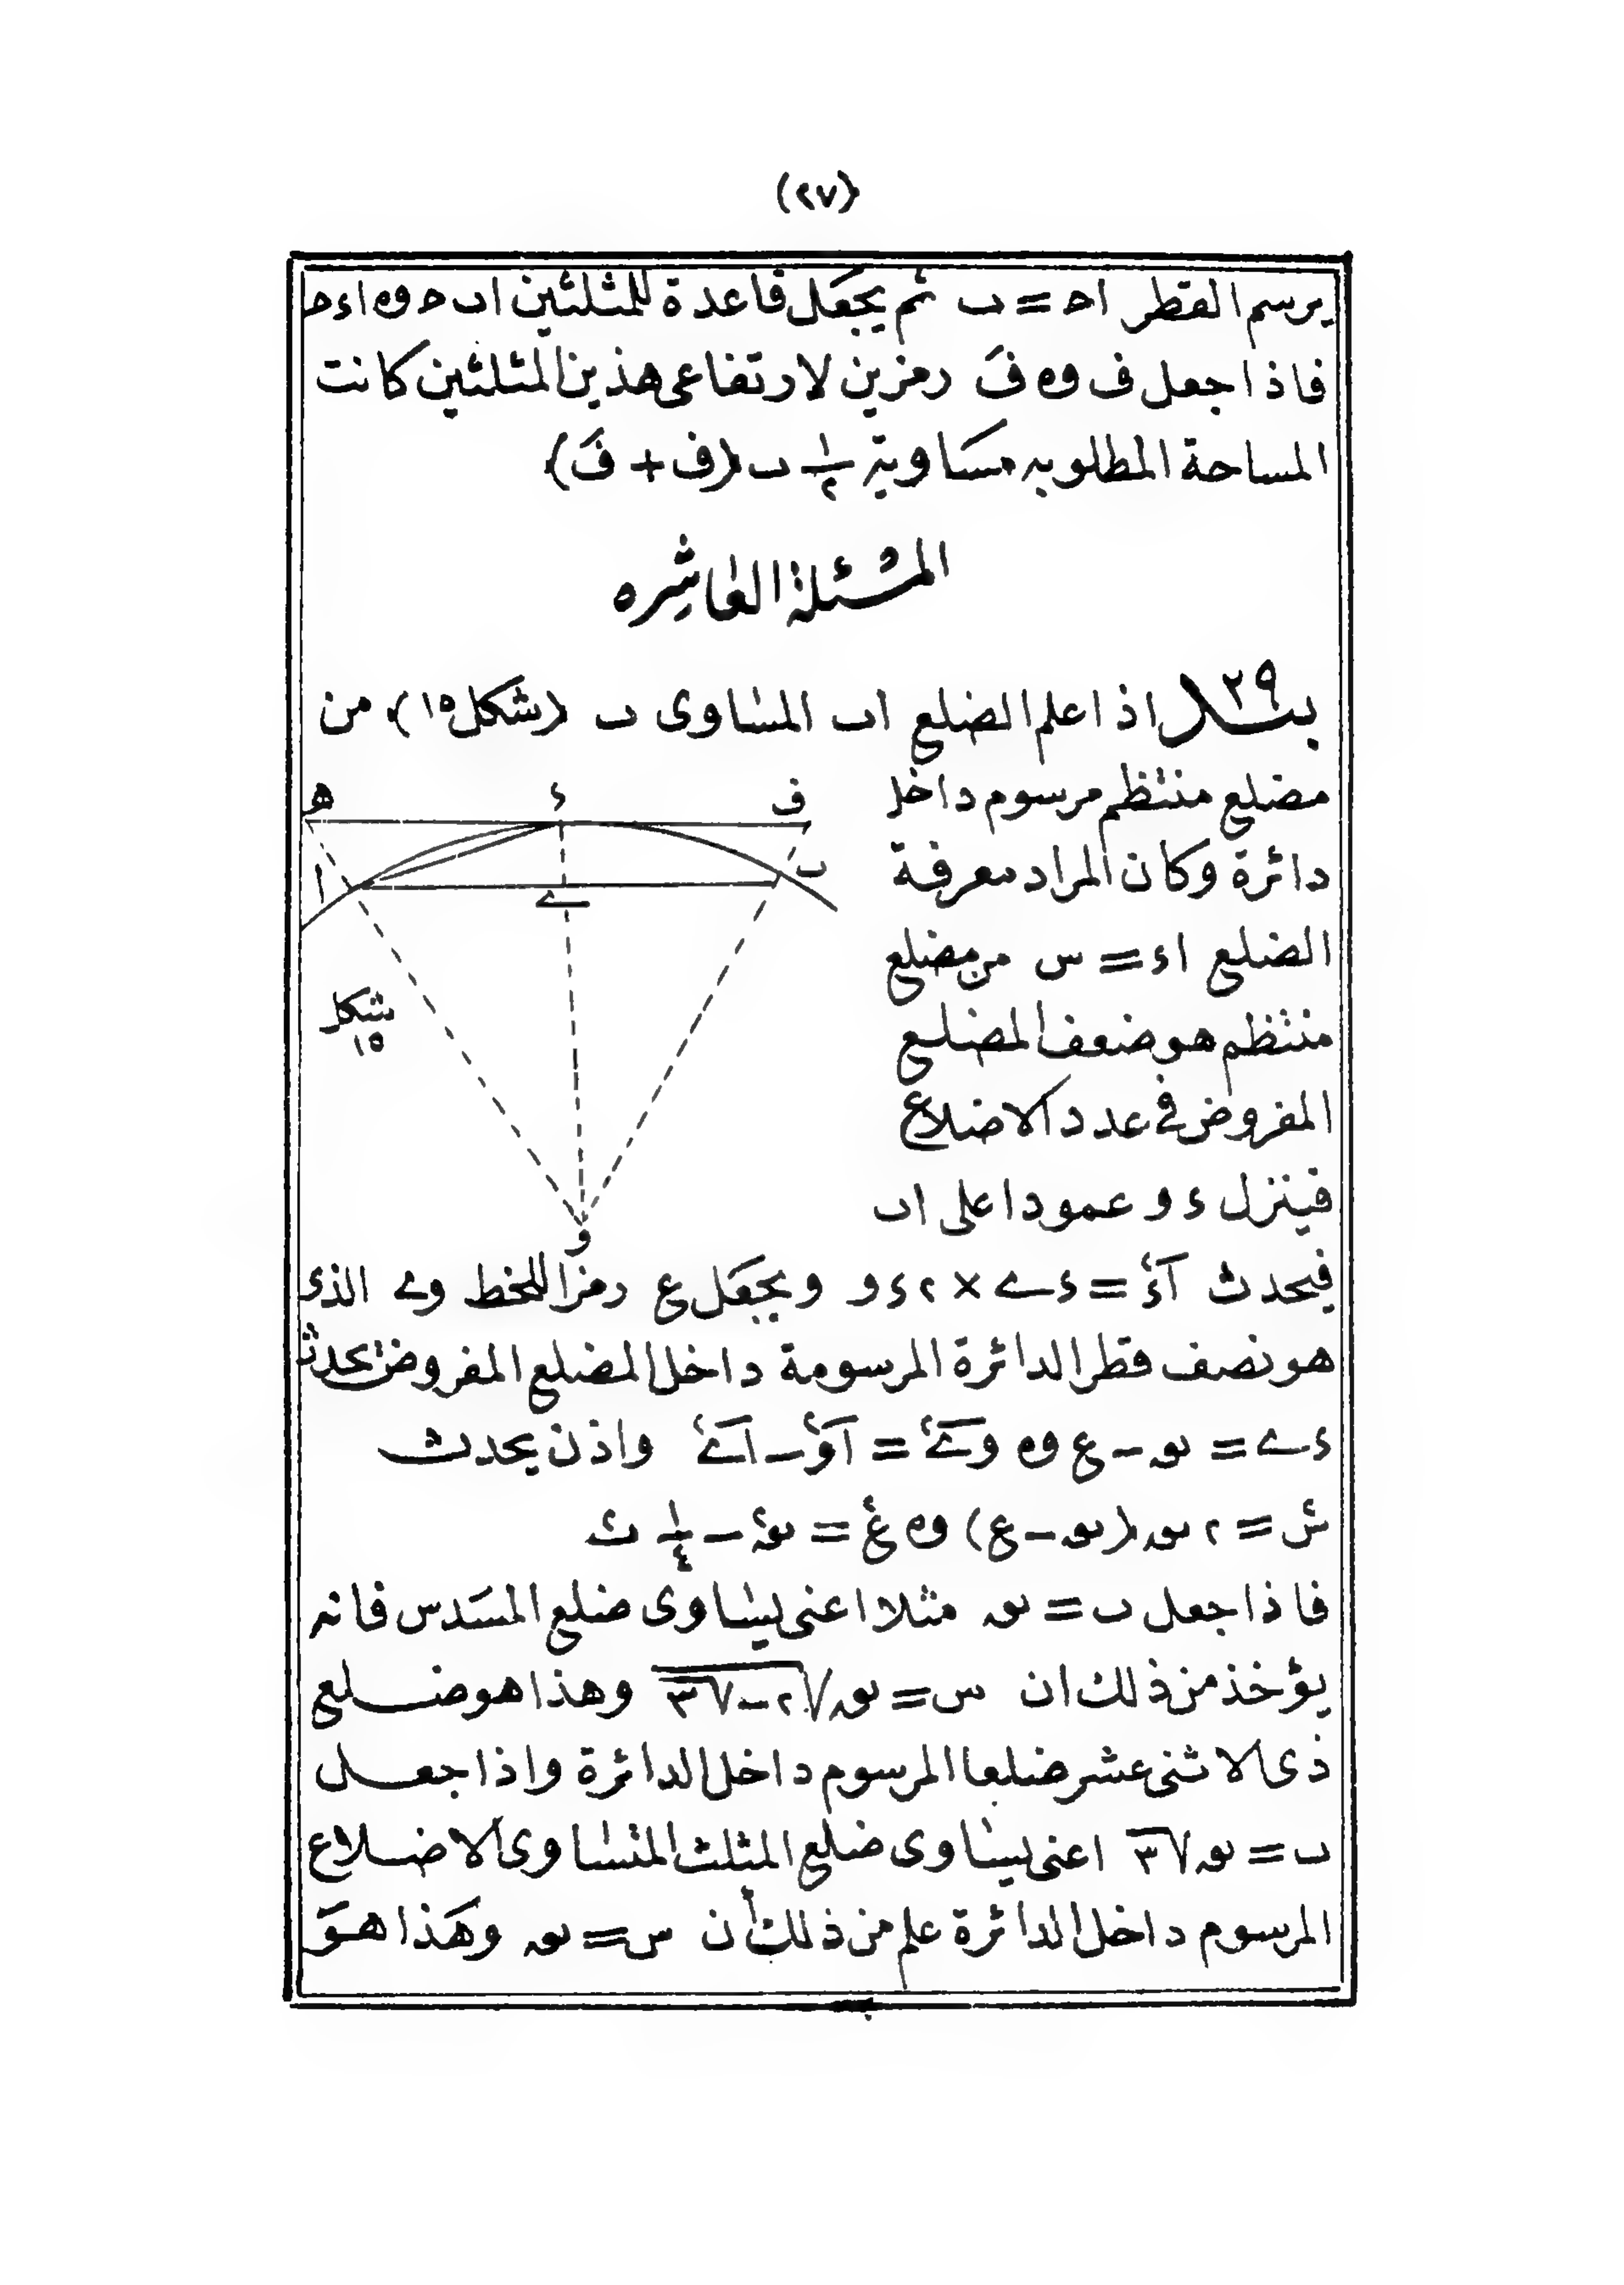 (٢٧)
يرسم القطر اح = ب ثم يجعل قاعدة للمثلثين اب ح وه اءح
فاذا جعل ف وه فَ رمزين لارتفاعى هذين المثلثين كانت
المساحة المطلوبه مساوية ١/٢ ب (ف + فَ)
المسئلة العاشره
بند ٢٩ اذا علم الضلع اب المساوى ب (شكل ١٥) من
مضلع منتظم مرسوم داخل
دائرة وكان المراد معرفة
الضلع اء = س من مضلع
منتظم هو ضعف المضلع
المفروض فى عدد الاضلاع
فينزل ء و عمودا على اب
ف ء ه
ب ے ا
شكل
١٥
و
فيحدث اء٢ = ءے × ٢ءو ويجعل ع رمزا للخط وے الذى
هو نصف قطر الدائرة المرسومة داخل المضلع المفروض يحدث
ءے = نوه - ع وه وے٢ = او٢ - اے٢ واذن يحدث
س٢ = ٢ نوه (نوه - ع) وه ع٢ = نوه٢ - ١/٤ ب٢
فاذا جعل ب = نوه مثلا اعنى يساوى ضلع المسدس فانه
يؤخذ من ذلك ان س = نوه √(٢-√٣) وهذا هو ضلع
ذى الاثنى عشر ضلعا المرسوم داخل الدائرة واذا جعل
ب = نوه √٣ اعنى يساوى ضلع المثلث المتساوى الاضلاع
المرسوم داخل الدائرة علم من ذلك أن س = نوه وهذا هو